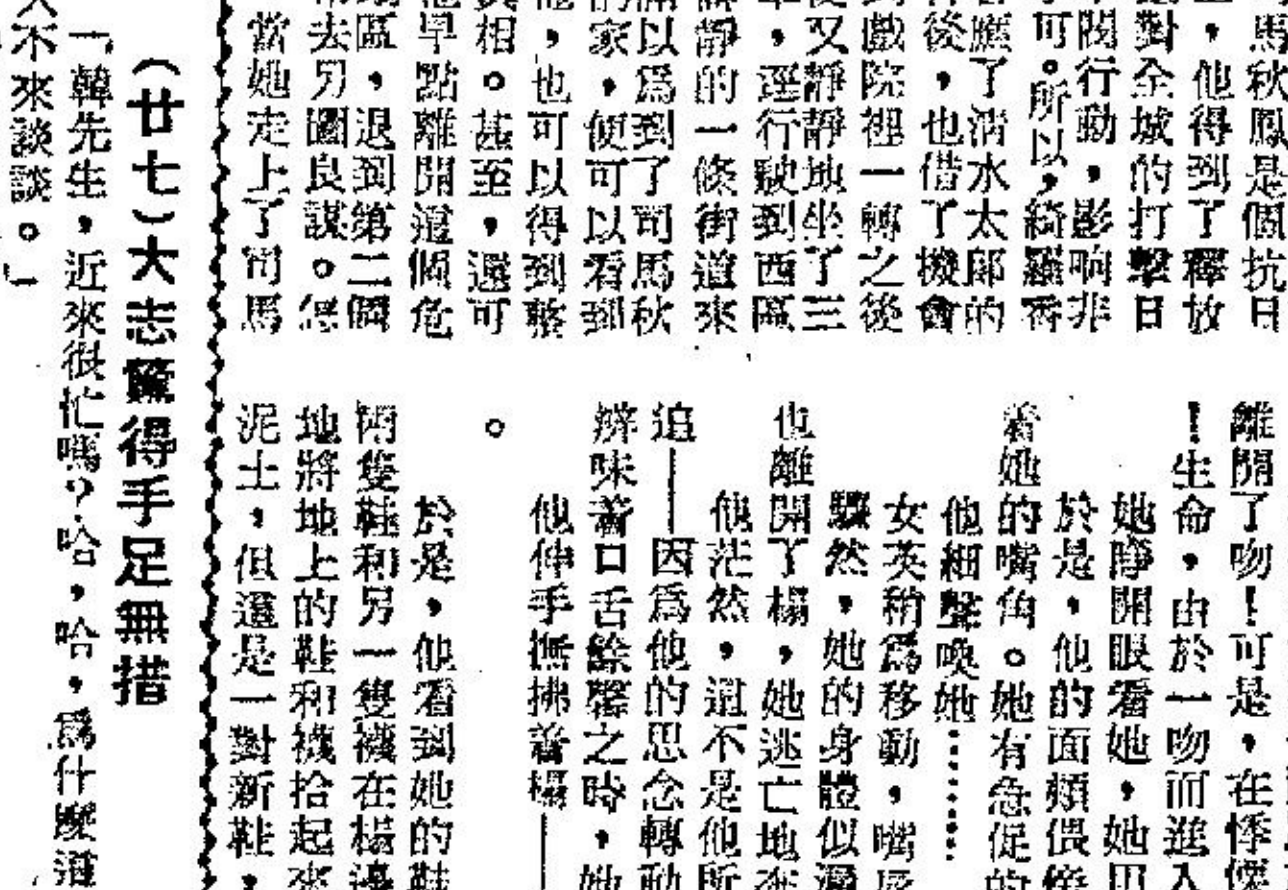 馬秋鳳是個抗日
，他得到了釋放
對全城的打擊日
閥行動，影响非
可。所以，綺羅香
應了清水太郎的
後，也借了機會
戲院裡一轉之後
又靜靜地坐了三
，逕行駛到西區
靜的一條街道來
以爲到了司馬秋
家，便可以看到
，也可以得到整
相。甚至，還可
早點離開這個危
區，退到第二個
去另圖良謀。怎
當她走上了司馬
離開了吻！可是，在悸
！生命，由於一吻而進入
她睜開眼看她，她
於是，他的面頰偎傍
着她的嘴角。她有急促的
他細聲喚她………
女英稍爲移動，嘴唇
驟然，她的身體似
也離開了榻，她逃亡地奔
他茫然，這不是他所
追——因爲他的思念轉動
辨味着口舌餘馨之時，她
他伸手撫拂着榻——
。
於是，他看到她的鞋
兩隻鞋和另一隻襪在榻邊
地將地上的鞋和襪拾起來
泥土，但還是一對新鞋，
（廿七）大志驚得手足無措
「韓先生，近來很忙嗎？哈，哈，爲什麼這
不來談談。」